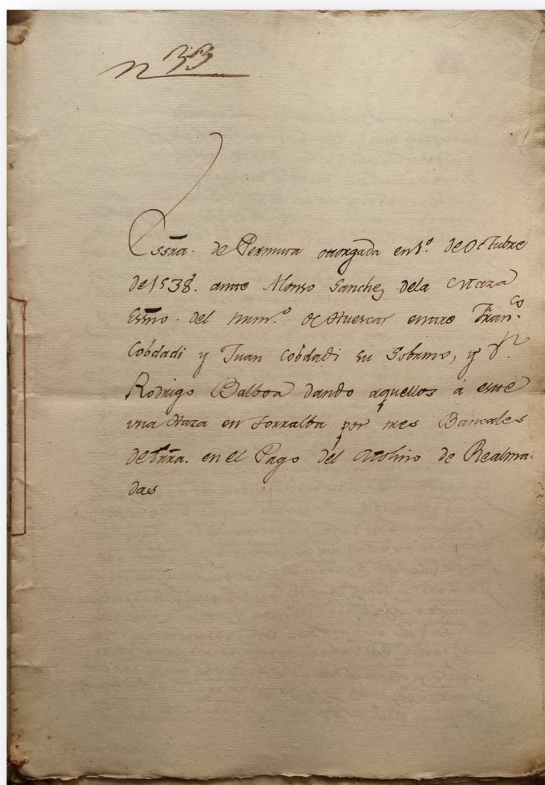 n 33
Essra. de Permuta otorgada en 1º. de Octubre
de 1538. ante Alonso Sanchez dela Maza
essno. del num.º de Huescar entre Fran.co
Cobdadi y Juan Cobdadi su Sobrino, y Dn.
Rodrigo Balboa dando aquellos á este
una Haza en Torralba por tres Bancales
de trra. en el Pago del Molino de Realma-
das